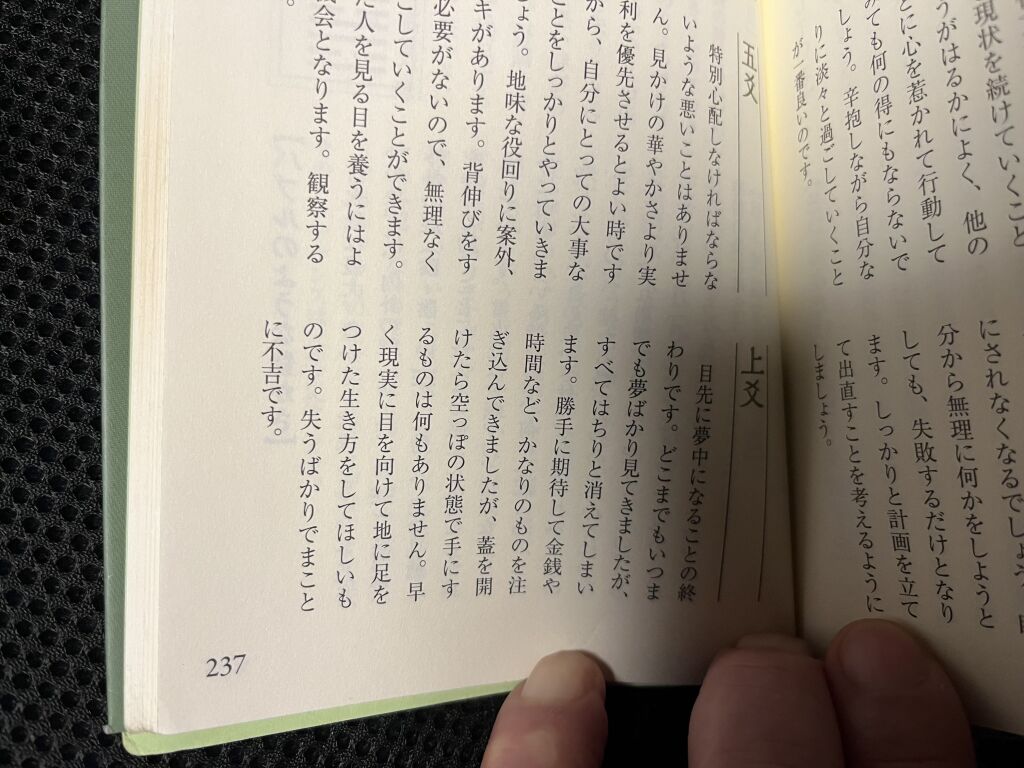 現状を続けていくこと
うがはるかによく、他の
とに心を惹かれて行動して
ても何の得にもならないで
しょう。辛抱しながら自分な
りに淡々と過ごしていくこと
が一番良いのです。
にされなくなるでしょう。
分から無理に何かをしようと
しても、失敗するだけとなり
ます。しっかりと計画を立て
て出直すことを考えるように
しましょう。
五爻
特別心配しなければならな
いような悪いことはありませ
ん。見かけの華やかさより実
利を優先させるとよい時です
から、自分にとっての大事な
ことをしっかりとやっていきま
しょう。地味な役回りに案外、
キがあります。背伸びをす
必要がないので、無理なく
こしていくことができます。
た人を見る目を養うにはよ
会となります。観察する
。
上爻
目先に夢中になることの終
わりです。どこまでもいつま
でも夢ばかり見てきましたが、
すべてはちりと消えてしまい
ます。勝手に期待して金銭や
時間など、かなりのものを注
ぎ込んできましたが、蓋を開
けたら空っぽの状態で手にす
るものは何もありません。早
く現実に目を向けて地に足を
つけた生き方をしてほしいも
のです。失うばかりでまこと
に不吉です。
237